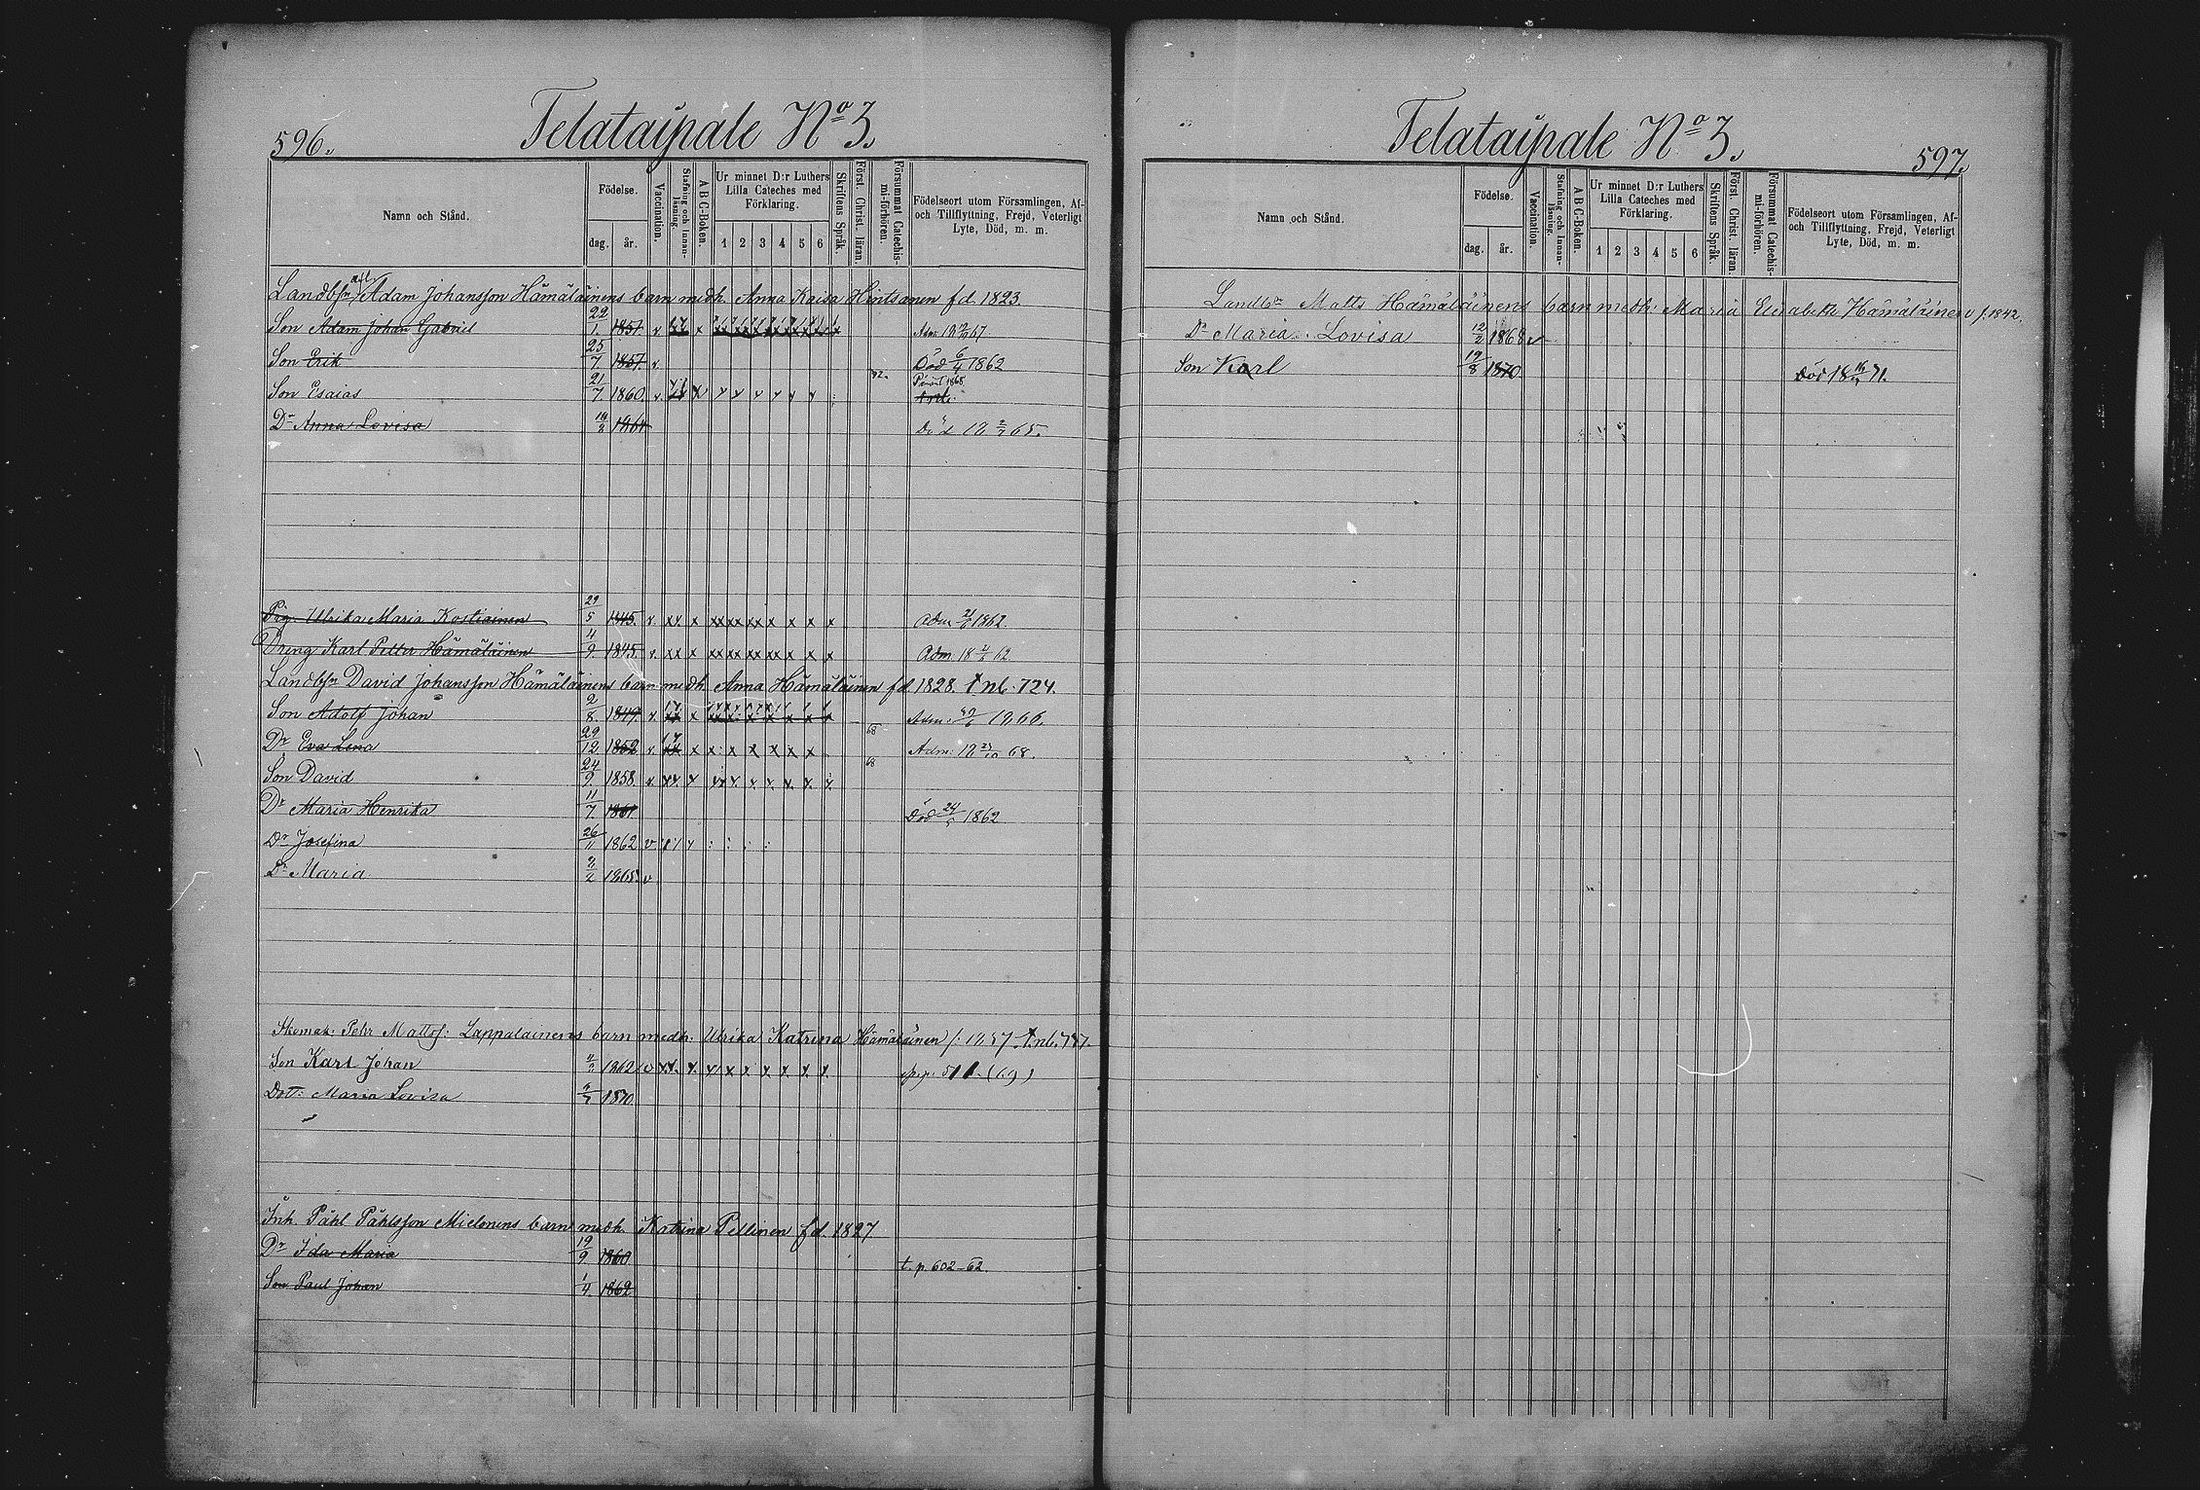 596.
Telataipale No 3.
Namn och Stånd.
Födelse.
dag.
år.
Vaccination.
Stafning och Innan-läsning.
A B C-Boken.
Ur minnet D:r Luthers
Lilla Cateches med
Förklaring.
1 2 3 4 5 6
Skriftens Språk.
Först. Christ. läran.
Försummat Catechis-mi-förhören.
Födelseort utom Församlingen, Af-
och Tillflyttning, Frejd, Veterligt
Lyte, Död, m. m.
Landbr Adam Johansson Hämäläinens barn medh. Anna Kaisa Hintsanen fd. 1823.
Son Adam Johan Gabriel 22/1. 1851 v x
Son Erik 25/7 1857. v. Död 6/4 1862
Son Esaias 21/7. 1860. v. x x x x x x x
Dr Anna Lovisa 1864 Död
Pig. Ulrika Maria Kostiainen 29/5 1845. v. xx x xx xx xx x x x x Adm 1862.
Dreng Karl Petter Hämäläinen 4/9. 1845. v. xx x xx xx xx xx x x x Adm. 62.
Landbr David Johansson Hämäläinens barn medh. Anna Hämäläinen fd. 1828. nb. 724.
Son Adolf Johan 2/8. 1849 v x Adm. 66.
68
Dr Eva Lena 29/12 1852 v x x x x x x x Adm: 68.
68
Son David 24/9. 1858. v. xx. x xx x. x x x. x x
Dr Maria Henrika 11/7. 1861 Död 24/5 1862
Dr Josefina 26/11 1862 v
Dr Maria 1865 v
Skomak. Pehr Matts: Lappalainens barn medh. Ulrika Katrina Hämäläinen
Son Karl Johan 1862 v xx. x. x x x x. x. x x. 511. (69)
Dott: Maria Lovisa 1870
Inh. Påhl Påhlsson Mielonens barn medh. Katrina Pellinen fd. 1827.
Dr Ida Maria 19/9 1860
t. p. 602-62
Son Paul Johan 1/4. 1862
Telataipale No 3.
597.
Namn och Stånd.
Födelse.
dag.
år.
Vaccination.
Stafning och Innan-läsning.
A B C-Boken.
Ur minnet D:r Luthers
Lilla Cateches med
Förklaring.
1 2 3 4 5 6
Skriftens Språk.
Först. Christ. läran.
Försummat Catechis-mi-förhören.
Födelseort utom Församlingen, Af-
och Tillflyttning, Frejd, Veterligt
Lyte, Död, m. m.
Landbr Matts Hämäläinens barn medh: Maria Elisabeth Hämäläinen f. 1842.
Dr Maria Lovisa 12/2 1868 v
Son Karl 19/8 1870 Död 71.